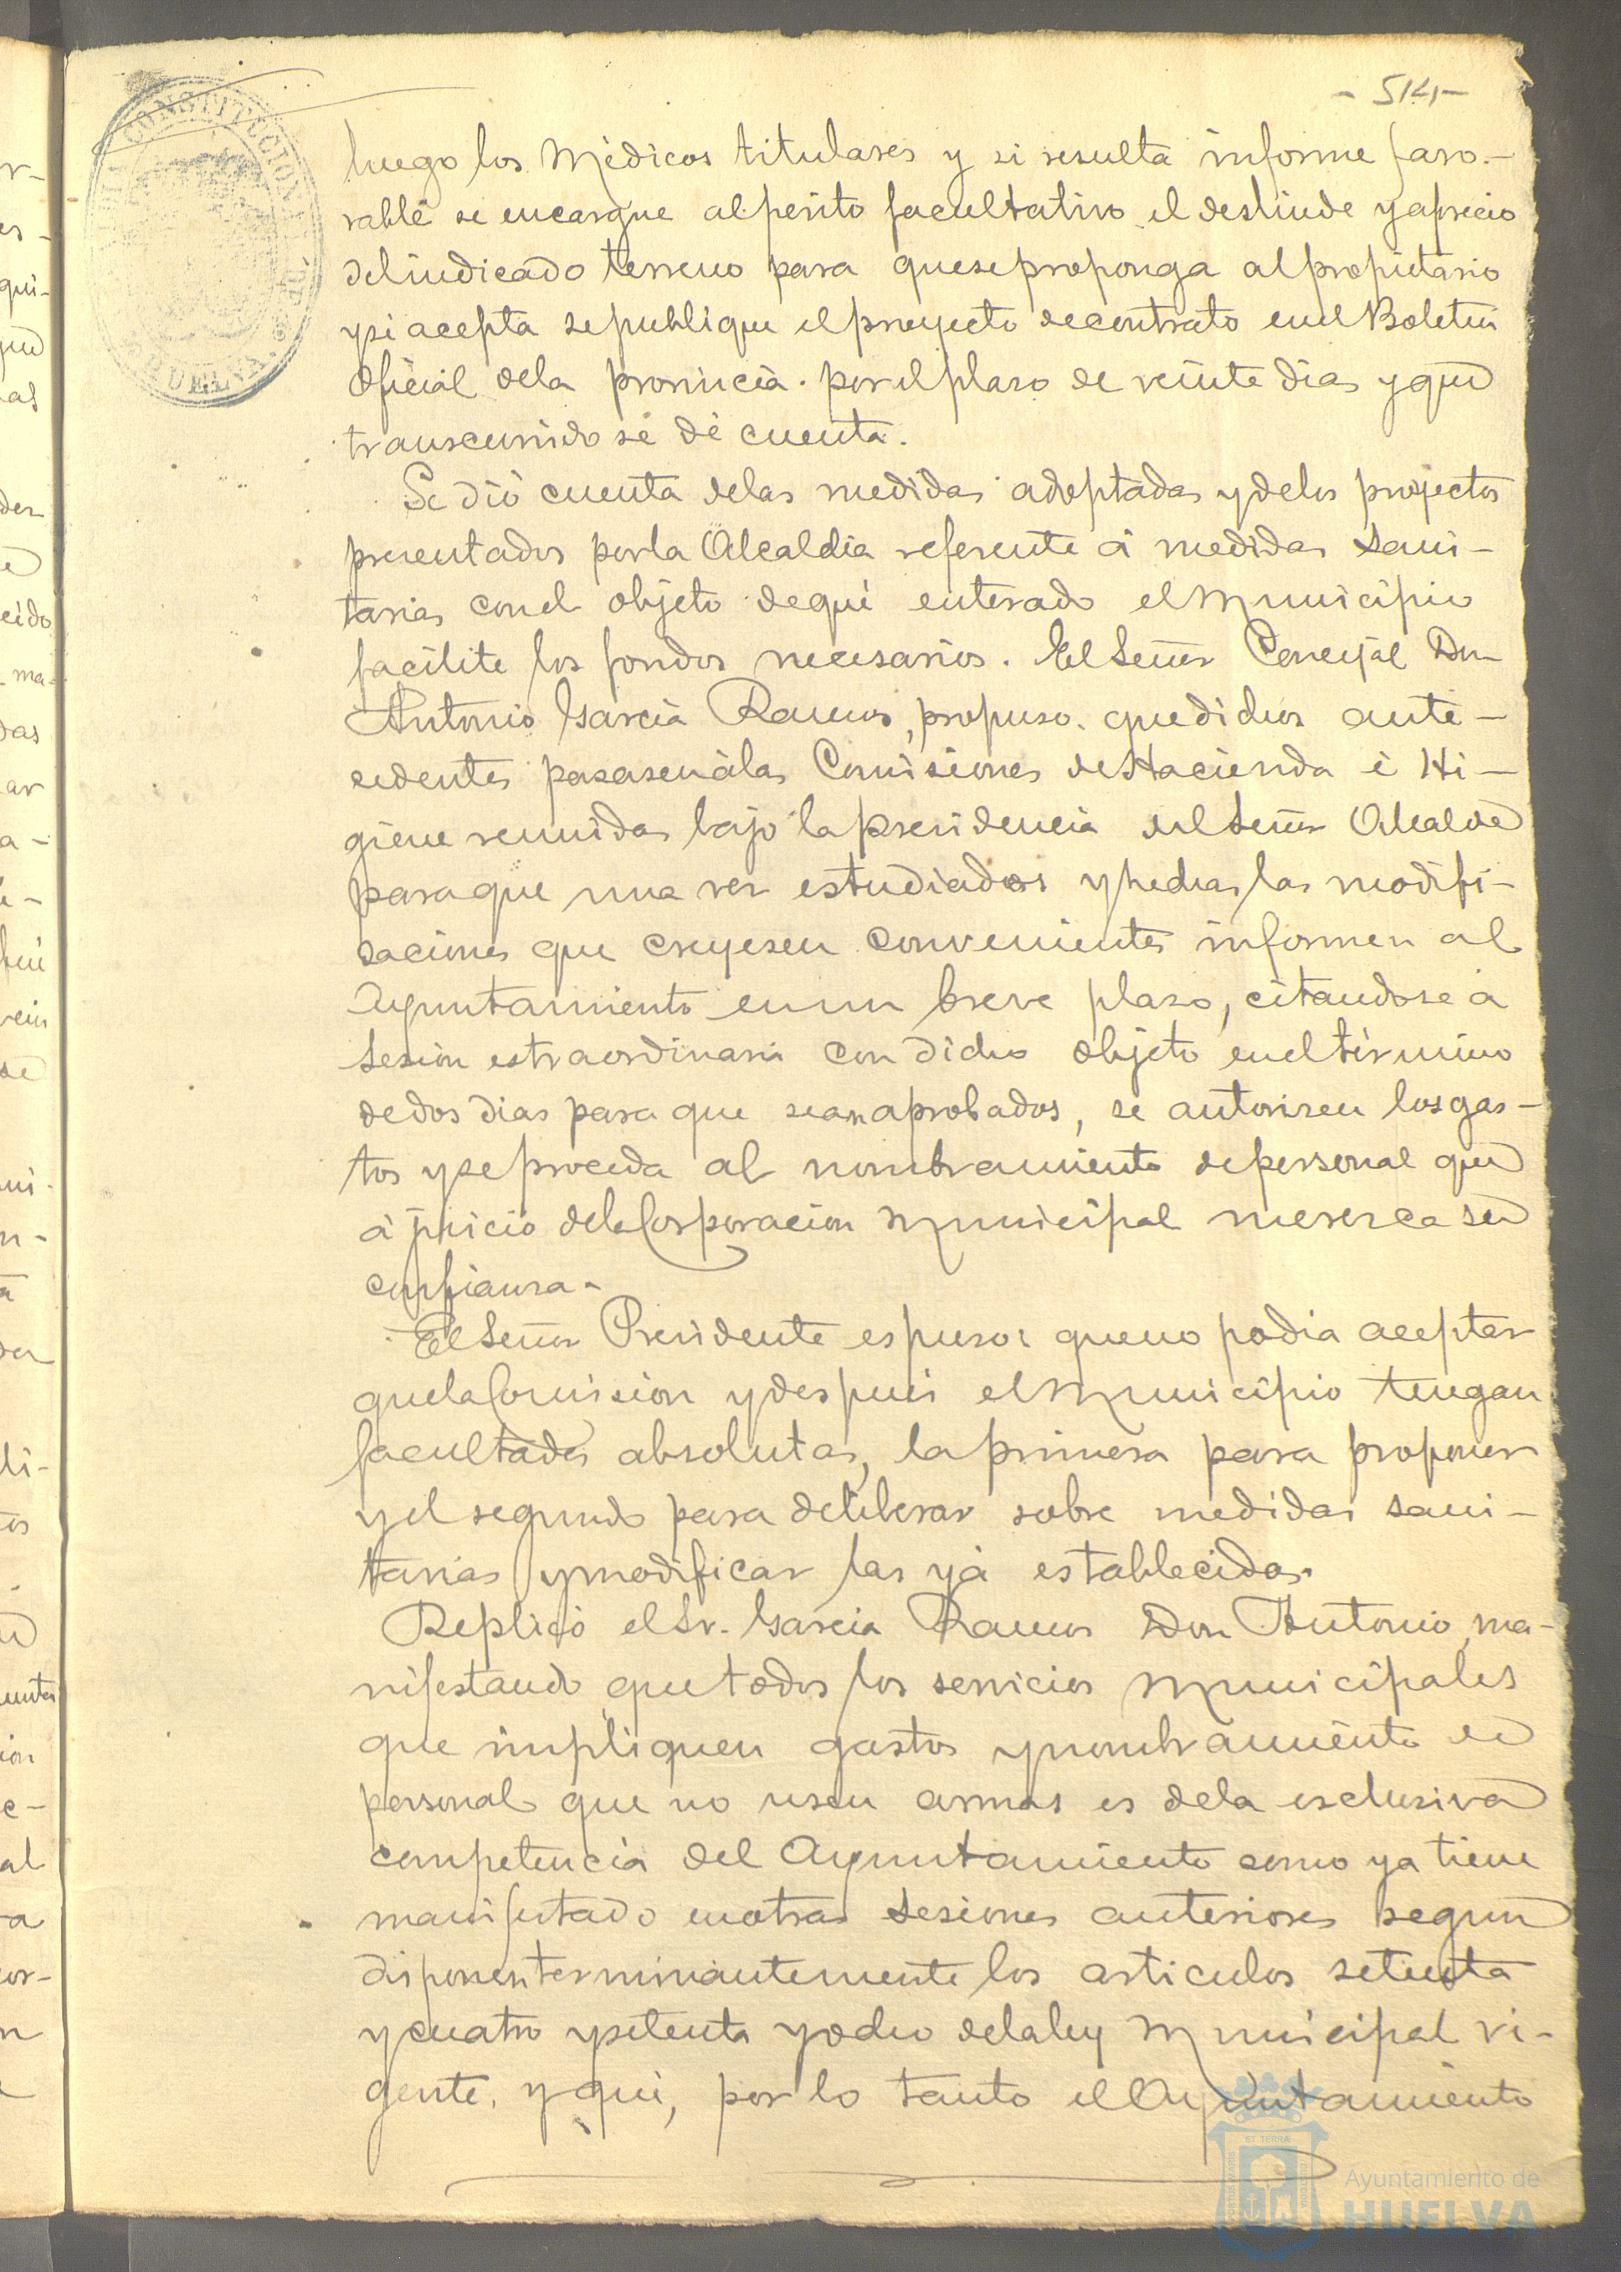 - 514 -
luego los Médicos titulares y si resulta informe favo-
rable se encargue al perito facultativo el deslinde y aprecio
del indicado terreno para que se proponga al propietario
y si acepta se publique el proyecto de contrato en el Boletin
Oficial de la provincia por el plazo de veinte dias y que
transcurrido se dé cuenta.
Se dió cuenta de las medidas adoptadas y de los proyectos
presentados por la Alcaldia referente á medidas sani-
tarias con el objeto de que enterado el Municipio
facilite los fondos necesarios. El Señor Concejal Don
Antonio Garcia Ramos, propuso que dichos ante-
cedentes pasasen á las Comisiones de Hacienda é Hi-
giene reunidas bajo la presidencia del Señor Alcalde
para que una vez estudiados y hechas las modifi-
caciones que creyesen convenientes informen al
Ayuntamiento en un breve plazo, citandose á
sesion estraordinaria con dicho objeto en el término
de dos dias para que sean aprobados, se autoricen los gas-
tos y se proceda al nombramiento de personal que
á juicio de la Corporacion Municipal merezca su
confianza.
El Señor Presidente espuso: que no podia aceptar
que la Comision y despues el Municipio tengan
facultades absolutas, la primera para proponer
y el segundo para deliberar sobre medidas sani-
tarias y modificar las yá establecidas.
Replicó el Sr. Garcia Ramos Don Antonio, ma-
nifestando que todos los servicios Municipales
que impliquen gastos y nombramiento de
personal que no usen armas es de la esclusiva
competencia del Ayuntamiento como ya tiene
manifestado en otras sesiones anteriores segun
disponen terminantemente los articulos setenta
y cuatro y setenta y ocho de la ley Municipal vi-
gente, y que, por lo tanto el Ayuntamiento
Ayuntamiento de
HUELVA